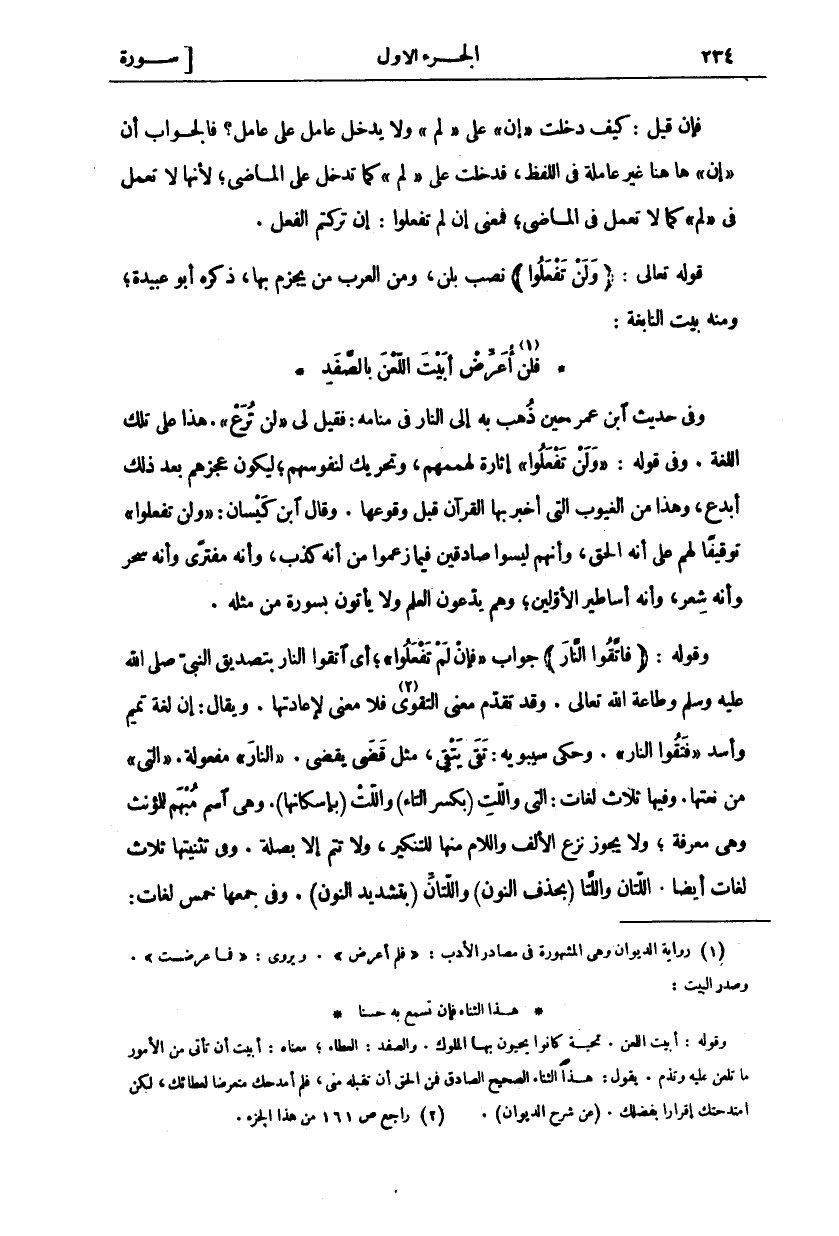 ٢٣٤ الجـزء الاول [ ســورة
فإن قيل : كيف دخلت «إن» على « لم » ولا يدخل عامل على عامل؟ فالجواب أن
«إن» ها هنا غير عاملة فى اللفظ، فدخلت على « لم » كما تدخل على المـاضى؛ لأنها لا تعمل
فى «لم» كما لا تعمل فى المـاضى؛ فمعنى إن لم تفعلوا : إن تركتم الفعل .
قوله تعالى : ﴿ وَلَنْ تَفْعَلُوا ﴾ نصب بلن، ومن العرب من يجزم بها، ذكره أبو عبيدة؛
ومنه بيت النابغة :
* فلن أُعَرِّضْ أَبَيْتَ اللّعْنَ بالصَّفَدِ (١) *
وفى حديث آبن عمر حين ذُهب به إلى النار فى منامه : فقيل لى «لن تُرَعْ» . هذا على تلك
اللغة . وفى قوله : «وَلَنْ تَفْعَلُوا» إثارة لهممهم، وتحريك لنفوسهم؛ ليكون عجزهم بعد ذلك
أبدع، وهذا من الغيوب التى أخبر بها القرآن قبل وقوعها . وقال آبن كَيْسان : «ولن تفعلوا»
توقيفًا لهم على أنه الحق، وأنهم ليسوا صادقين فيما زعموا من أنه كذب، وأنه مفترًى وأنه سحر
وأنه شِعر، وأنه أساطير الأوّلين؛ وهم يدّعون العلم ولا يأتون بسورة من مثله .
وقوله : ﴿ فاتَّقُوا النَّارَ ﴾ جواب «فإنْ لَمْ تَفْعَلُوا»؛ أى آتقوا النار بتصديق النبىّ صلى الله
عليه وسلم وطاعة الله تعالى . وقد تقدّم معنى التقوى (٢) فلا معنى لإعادتها . ويقال : إن لغة تميم
وأسد «فَتَقُوا النار» . وحكى سيبويه : تَقَى يَتْقِى، مثل قَضَى يقضى . «النارَ» مفعولة . «التى»
من نعتها . وفيها ثلاث لغات : التى واللّتِ (بكسر التاء) واللّتْ (بإسكانها). وهى آسم مُبْهَم للؤنث
وهى معرفة ؛ ولا يجوز نزع الألف واللام منها للتنكير، ولا تتم إلا بصلة . وفى تثنيتها ثلاث
لغات أيضا . اللّتان واللّتا (بحذف النون) واللّتانّ (بتشديد النون) . وفى جمعها خمس لغات :
(١) رواية الديوان وهى المشهورة فى مصادر الأدب : « فلم أعرض » . ويروى : « فـما عرضت » .
وصدر البيت :
* هـذا الثناء فإن تسمع به حسنا *
وقوله : أبيت اللعن . تحيـة كانوا يحيون بهـا الملوك . والصفد : العطاء ؛ معناه : أبيت أن تأتى من الأمور
ما تلعن عليه وتذم . يقول : هـذا الثناء الصحيح الصادق فمن الحق أن تقبله منى، فلم أمدحك متعرضا لعطائك، لكن
امتدحتك إقرارا بفضلك . (من شرح الديوان) . (٢) راجع ص ١٦١ من هذا الجزء .